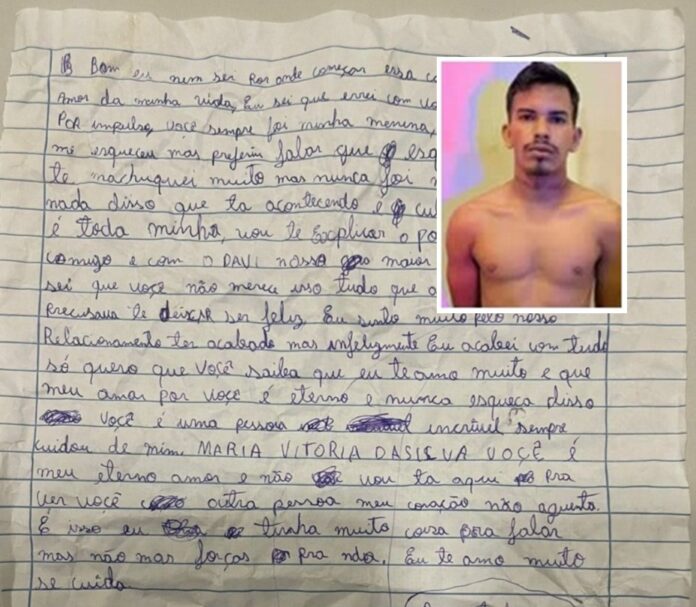 Bom eu nem ser por onde começar essa
Amor da minha vida, Eu sei que errei com
POR impulso, você sempre foi minha menina,
me esqueceu mas preferiu falar que
te machuquei muito mas nunca foi
nada disso que ta acontecendo é
é toda minha, vou te Explicar o
comigo e com o DAVI nosso maior
sei que você não mereu isso tudo que
precisava te deixar ser feliz Eu sinto muito pelo nosso
Relacionamento ter acabado mas infelizmente Eu acabei com tudo
só quero que você saiba que eu te amo muito e que
meu amor por você é eterno e nunca esqueça disso
Você é uma pessoa incrivel sempre
cuidou de mim. MARIA VITORIA DASILVA VOCÊ É
meu eterno amor e não vou ta aqui pra
ver você outra pessoa meu coração não aguenta.
É isso eu tinha muito coisa pora falar
mas não mas forças pra nda. Eu te amo muito
se cuida